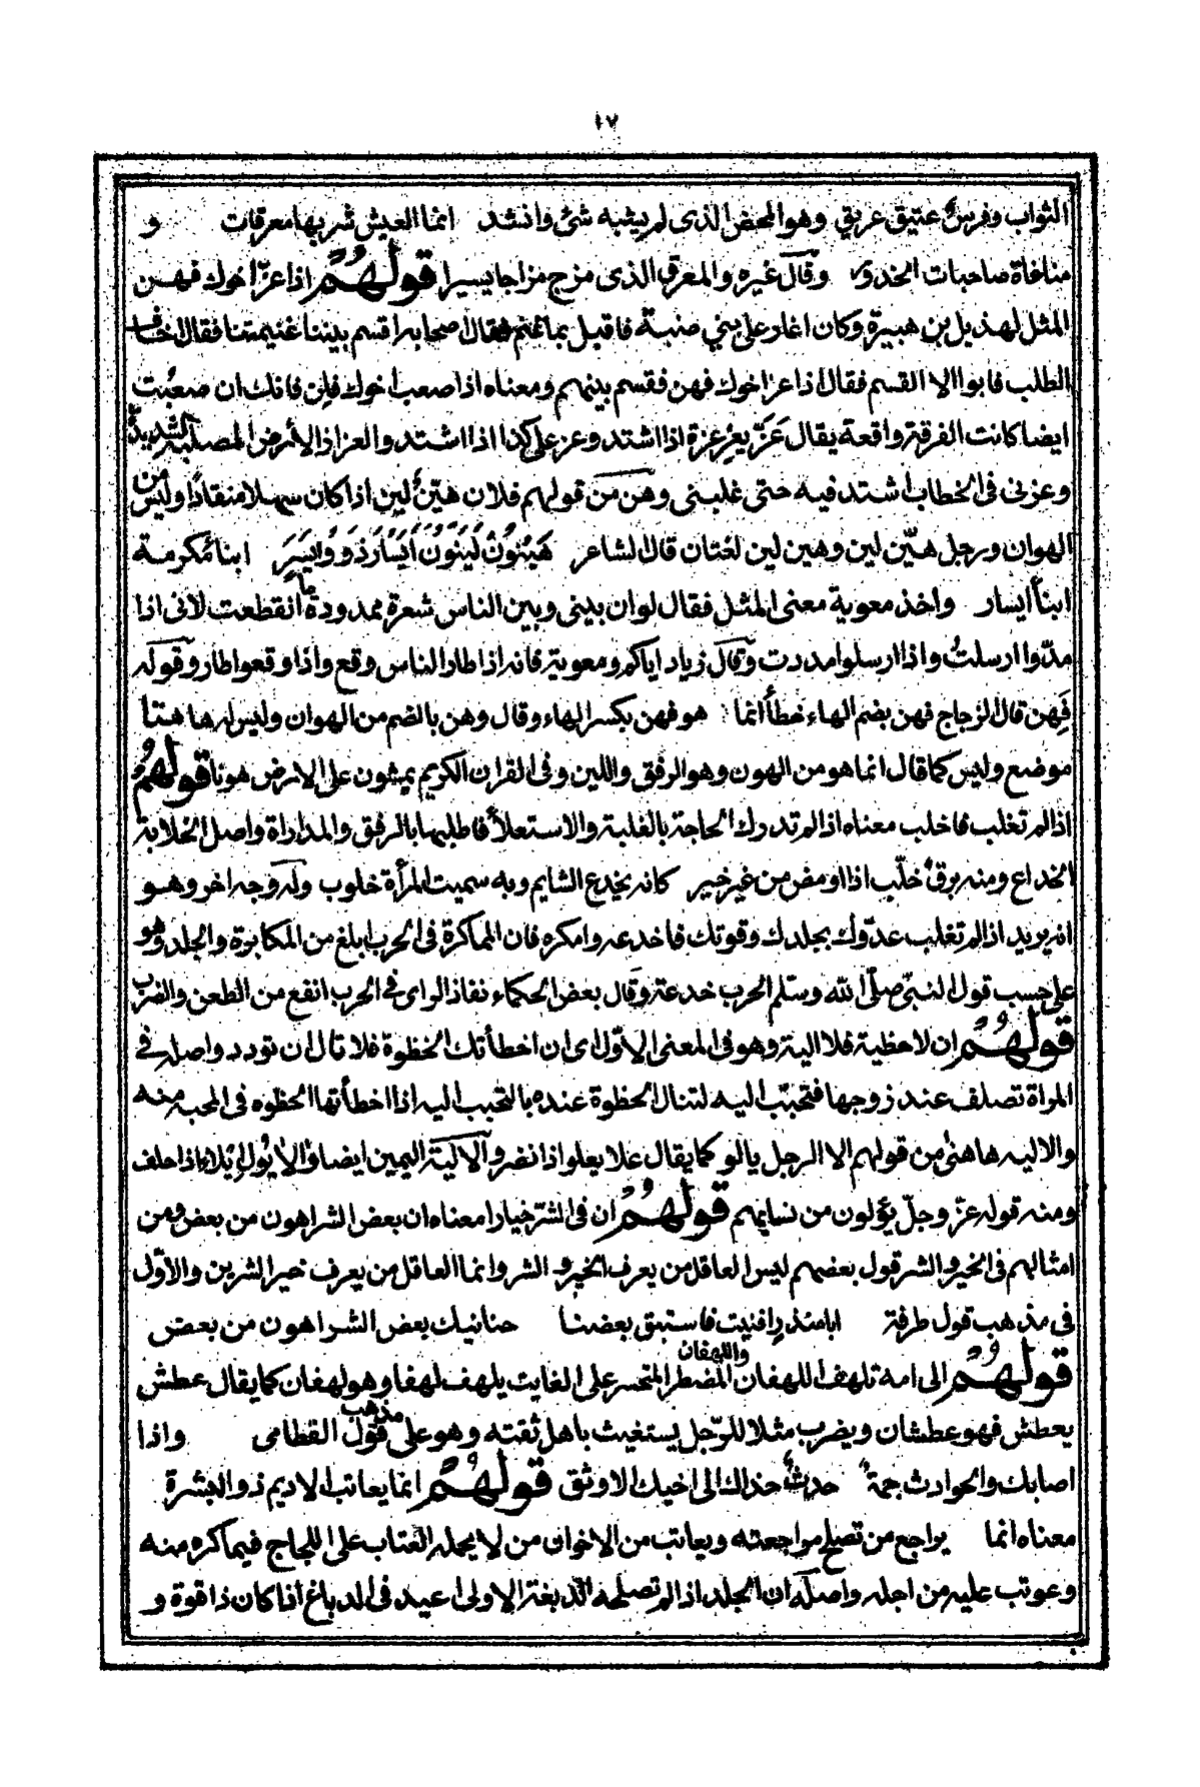 ١٧
الثواب وفرس عتيق عريق وهو المحض الذى لم يشبه شئ وانشد انما العيش شربها معرقات و
منافاة صاحبات الخدور وقال غيره والمعرق الذى مزج مزاجا يسيرا قولهم اذا عز اخوك فهن
المثل لهذيل بن هبيرة وكان اغار على بني ضبة فاقبل بما غنم فقال اصحابه اقسم بيننا غنيمتنا فقال اخاف
الطلب فابوا الا القسم فقال اذا عز اخوك فهن فقسم بينهم ومعناه اذا صعب اخوك فلن فانك ان صعبت
ايضا كانت الفرقة واقعة يقال عَزّ يعز عزة اذا اشتد وعز على كذا اذا اشتد والعزاز الأرض الصلبة الشديدة
وعزنى فى الخطاب اشتد فيه حتى غلبنى وهن من قولهم فلان هيّن لين اذا كان سهلا منقادا وليس من
الهوان ورجل هيّن لين وهين لين لغتان قال الشاعر هَيْنُونَ لَيْنُونَ اَيْسَارٌ ذَوُو يَسَرٍ ابناء مكرمة
ابناأ ايسار واخذ معوية معنى المثل فقال لو ان بينى وبين الناس شعرة ممدودة ما انقطعت لانى اذا
مدّوا ارسلتُ واذا ارسلوا مددت وقال زياد اياكم ومعوية فانه اذا طار الناس وقع واذا وقعوا طار وقوله
فَهِن قال الزجاج فهن بضم الهاء خطأ انما هو فهن بكسر الهاء وقال وهن بالضم من الهوان وليس له هاهنا
موضع وليس كما قال انما هو من الهون وهو الرفق واللين وفى القران الكريم يمشون على الارض هونا قولهم
اذا لم تغلب فاخلب معناه اذا لم تدرك الحاجة بالغلبة والاستعلأ فاطلبها بالرفق والمداراة واصل الخلابة
الخداع ومنه برق خلّب اذا اومض من غير خير كانه يخدع الشايم وبه سميت المرأة خلوب وله وجه اخر وهو
انه يريد اذا لم تغلب عدوّك بجلدك وقوتك فاخدعه وامكره فان المماكرة فى الحرب ابلغ من المكابرة والجلد وهو
على حسب قول النبى صلّى الله وسلم الحرب خدعة وقال بعض الحكماء نفاذ الراى فى الحرب انفع من الطعن والضرب
قولهم ان لا حظية فلا الية وهو فى المعنى الاوّل اى ان اخطأتك الحظوة فلا تال ان تودد واصله فى
المراة تصلف عند زوجها فتحبّب اليه لتنال الحظوة عنده بالتحبب اليه اذا اخطأتها الحظوه فى المحبه منه
والاليه هاهنا من قولهم الا الرجل يالو كما يقال علا يعلو اذا نضر والاَلية اليمين ايضا والأ يُولِ اِيلاءا اذا حلف
ومنه قوله عزّ وجلّ يؤلون من نسايهم قولهم ان فى الشر خيارا معناه ان بعض الشر اهون من بعض ومن
امثالهم فى الخير والشر قول بعضهم ليس العاقل من يعرف الخير و الشر وانما العاقل من يعرف خير الشرين والأوّل
فى مذهب قول طرفة ابا منذرٍ افنيت فاستبق بعضنا حنانيك بعض الشر اهون من بعض
قولهم الى امه تلهف اللهفان واللهفان المضطر المتحسر على الغايت يلهف لهفا وهو لهفان كما يقال عطش
يعطش فهو عطشان ويضرب مثلا للرّجل يستغيث باهل ثقته وهو على مذهب قول القطامى واذا
اصابك والحوادث جمة حدث حذاك الى اخيك الاوثق قولهم انما يعاتب الاديم ذو البشرة
معناه انما يراجع من تصلح مراجعته ويعاتب من الاخوان من لا يحمله العتاب على اللجاج فيما كره منه
وعوتب عليه من اجله واصله ان الجلد اذا لم تصلحه الدبغة الاولى اعيد فى الدباغ اذا كان ذا قوة و